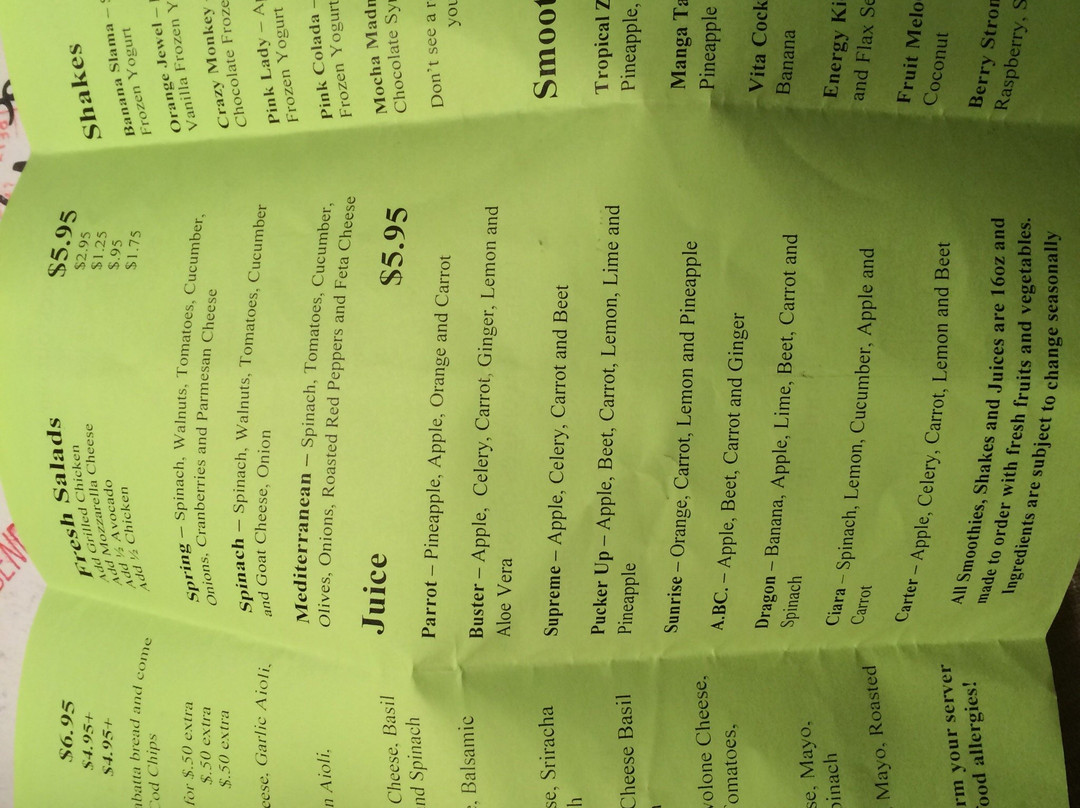 $6.95
$4.95+
$4.95+
bread and come
Cod Chips
for $.50 extra
$.50 extra
$.50 extra
Garlic Aioli,
Aioli.
Cheese, Basil
Spinach
Balsamic
Sriracha
Cheese Basil
Cheese,
Mayo,
Mayo, Roasted
your server
allergies!
Fresh Salads $5.95
Add Grilled Chicken $2.95
Add Mozzarella Cheese $1.25
Add ½ Avocado $.95
Add ½ Chicken $1.75
Spring – Spinach, Walnuts, Tomatoes, Cucumber,
Onions, Cranberries and Parmesan Cheese
Spinach – Spinach, Walnuts, Tomatoes, Cucumber
and Goat Cheese, Onion
Mediterranean – Spinach, Tomatoes, Cucumber,
Olives, Onions, Roasted Red Peppers and Feta Cheese
Juice $5.95
Parrot – Pineapple, Apple, Orange and Carrot
Buster – Apple, Celery, Carrot, Ginger, Lemon and
Aloe Vera
Supreme – Apple, Celery, Carrot and Beet
Pucker Up – Apple, Beet, Carrot, Lemon, Lime and
Pineapple
Sunrise – Orange, Carrot, Lemon and Pineapple
A.BC. – Apple, Beet, Carrot and Ginger
Dragon – Banana, Apple, Lime, Beet, Carrot and
Spinach
Ciara – Spinach, Lemon, Cucumber, Apple and
Carrot
Carter – Apple, Celery, Carrot, Lemon and Beet
All Smoothies, Shakes and Juices are 16oz and
made to order with fresh fruits and vegetables.
Ingredients are subject to change seasonally
Shakes
Banana Slama –
Frozen Yogurt
Orange Jewel –
Vanilla Frozen
Crazy Monkey
Chocolate
Pink Lady –
Frozen Yogurt
Pink Colada –
Frozen Yogurt
Mocha
Chocolate
Don't see a
Tropical
Pineapple,
Manga
Pineapple
Vita
Banana
Energy
and Flax
Fruit
Coconut
Berry
Raspberry,